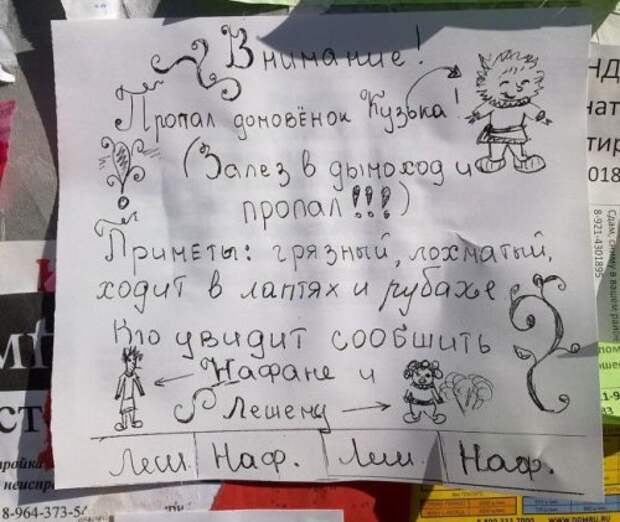 Внимание!
Пропал домовёнок Кузька!
(Залез в дымоход и
пропал!!!)
Приметы: грязный, лохматый,
ходит в лаптях и рубахе
Кто увидит сообшить
Нафане и
Лешему
Леш. Наф. Леш. Наф.
Сдам, сниму в вашем
8-921-4301895
018
8-964-373-5